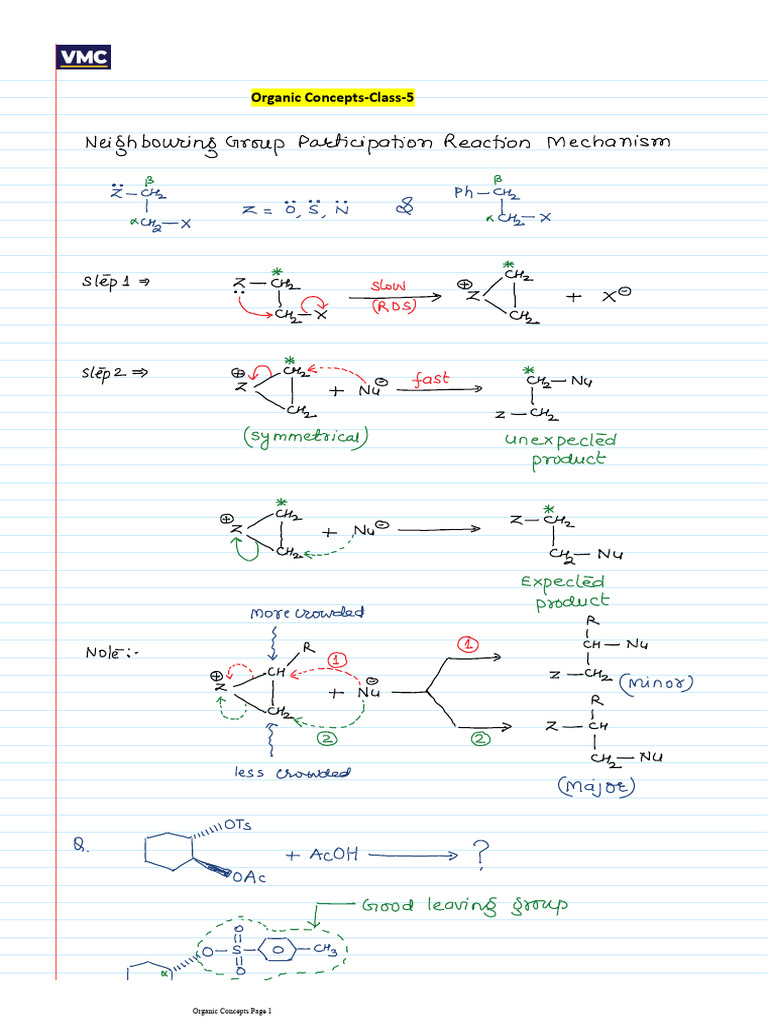 VMC
Organic Concepts-Class-5
Neighbouring Group Participation Reaction Mechanism
Z̈ – CH₂ β
α CH₂ – X
Z = Ö, S̈, N̈ &
Ph – CH₂ β
α CH₂ – X
Step 1 ⇒ Z – CH₂ * CH₂ – X slow (RDS) ⊕ Z CH₂ * CH₂ + X⊖
Step 2 ⇒ ⊕ Z CH₂ * CH₂ + Nu⊖ fast * CH₂ – Nu
Z – CH₂
(Symmetrical) unexpected product
⊕ Z CH₂ * CH₂ + Nu⊖ Z – CH₂ * CH₂ – Nu
Expected product
more crowded
Note:- ⊕ Z CH R CH₂ + Nu⊖ ① ②
① R CH – Nu
Z – CH₂ (Minor)
② R Z – CH
CH₂ – Nu
less crowded
(Major)
Q. OTs OAc + AcOH ?
Good leaving group
α O – S – O CH₃
O
O
Organic Concepts Page 1